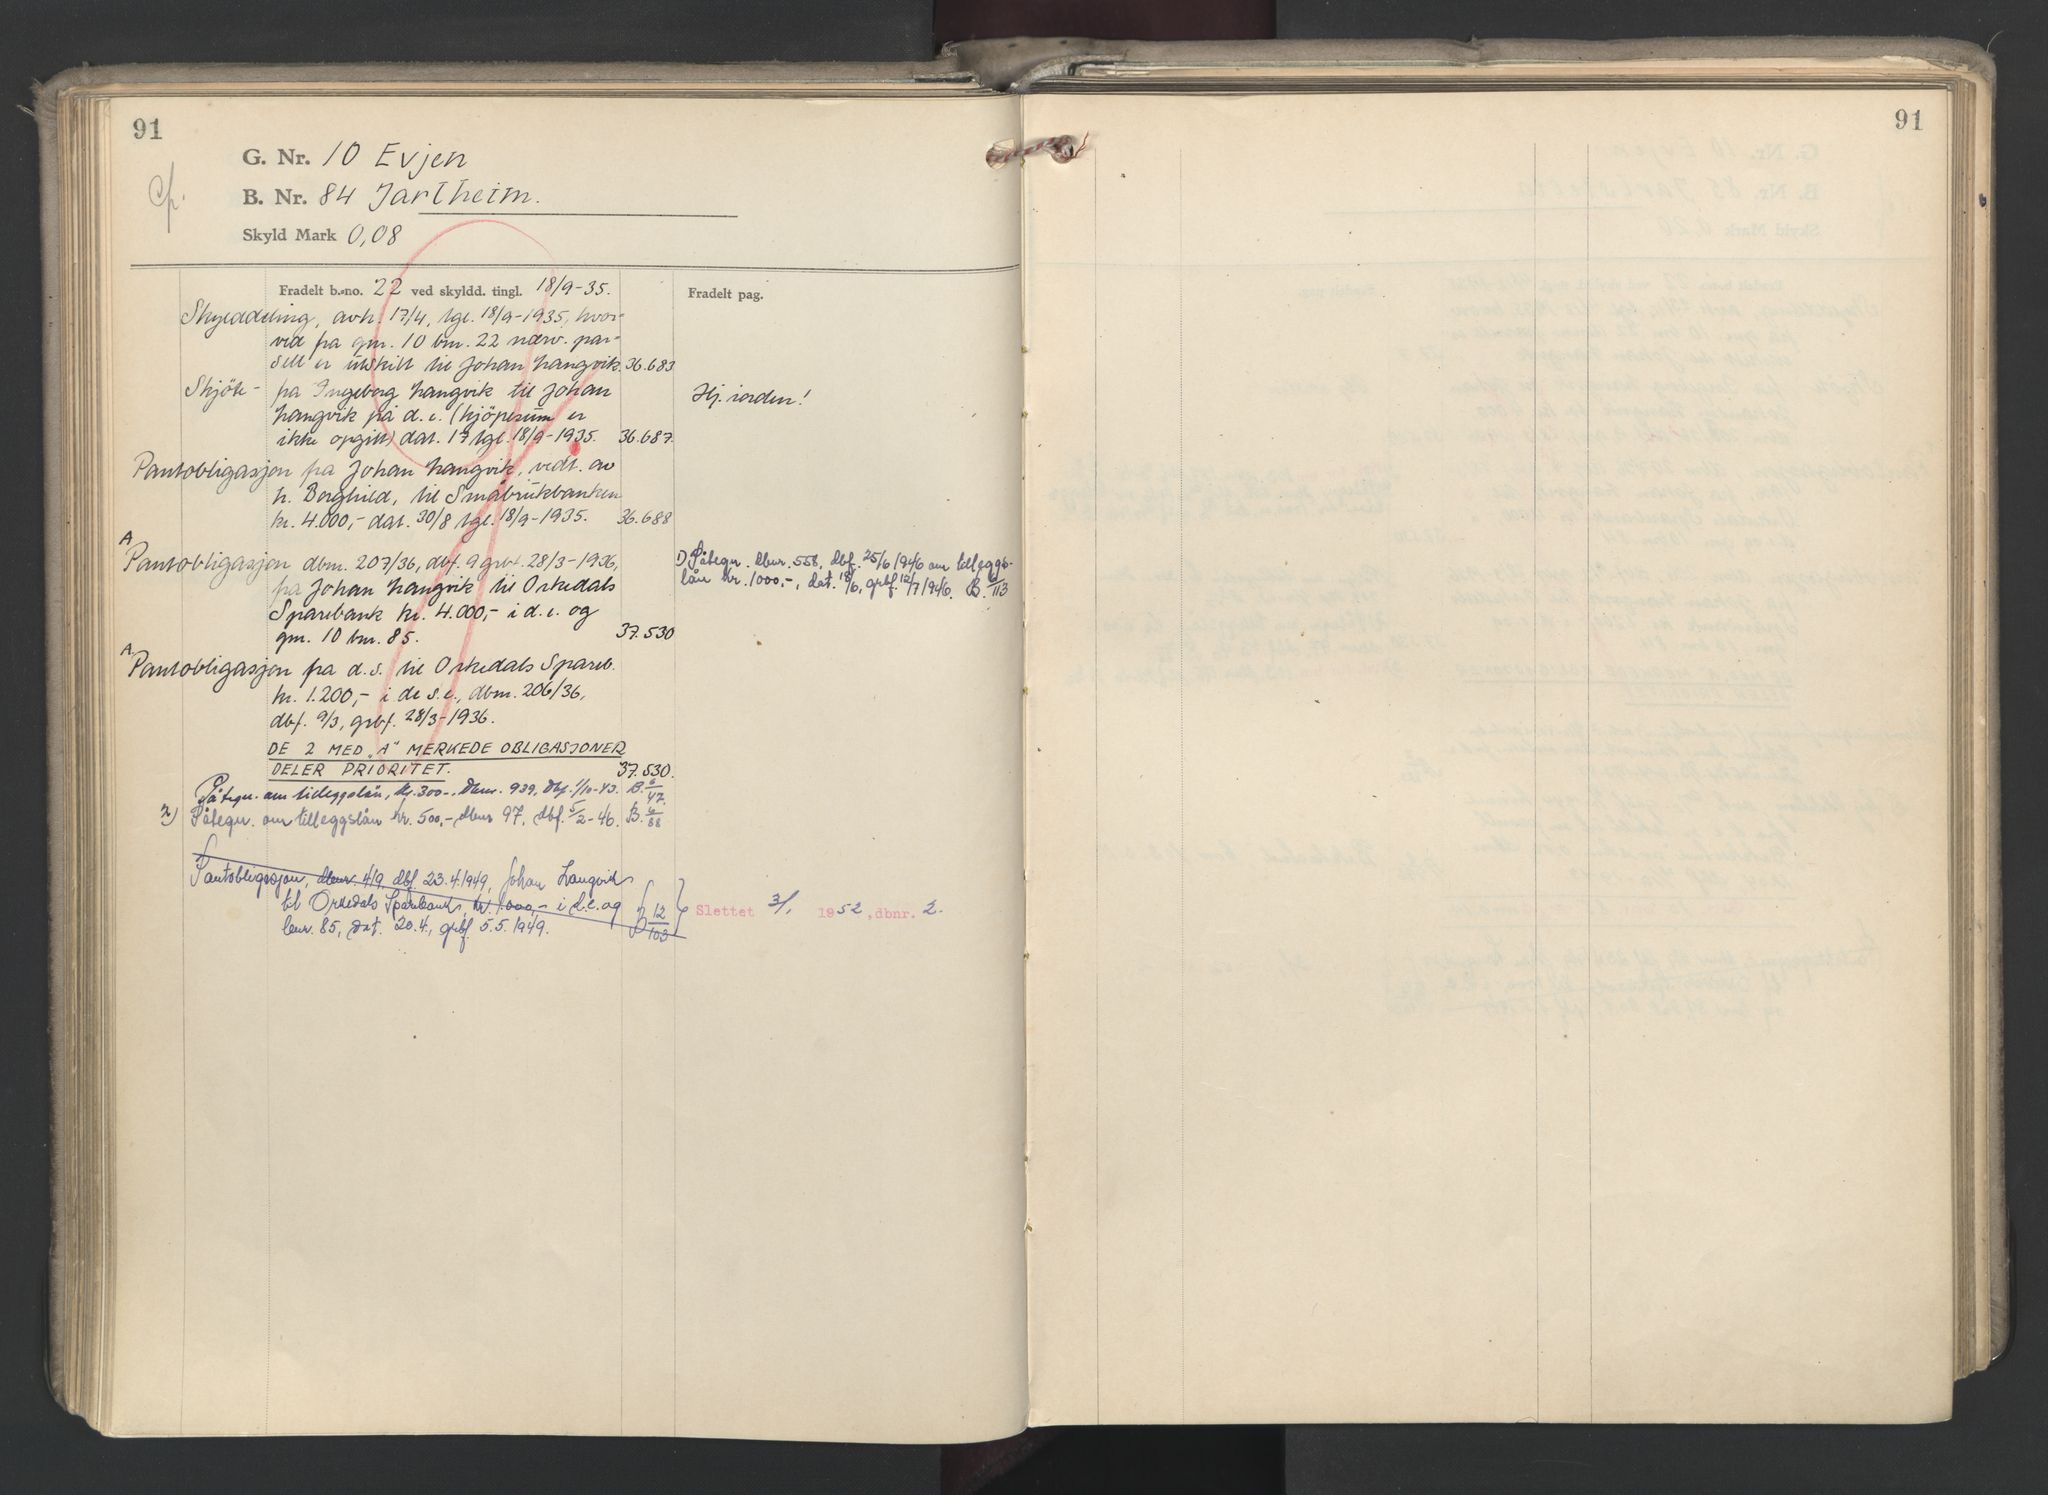 91
cfr.
G. Nr. 10 Evjen
B. Nr. 84 Jarlheim.
Skyld Mark 0,08
Fradelt b.-no. 22 ved skyldd. tingl. 18/9-35.
Fradelt pag.
Skylddeling, avh. 17/4, tgl. 18/9-1935, hvor-
ved fra gnr. 10 bnr. 22 nærv. par-
sell er utskilt til Johan Langvik. 36.683
Skjöte - fra Ingeborg Langvik til Johan
Langvik på d. e. (kjöpesum er
ikke opgitt) dat. 17 tgl. 18/9-1935. 36.687.
Hj. iorden!
Pantobligasjon fra Johan Langvik, vedt. av
h. Borghild, til Småbrukbanken
kr. 4.000,- dat. 30/8 tgl. 18/9-1935. 36.688
A
Pantobligasjon dbnr. 207/36, dbf. 9 grbf. 28/3-1936,
fra Johan Langvik til Orkedals
Sparebank kr. 4.000,- i d. e. og
gnr. 10 bnr. 85. 37.530
1) Påtegn. dbnr. 558, dbf. 25/6 1946 om tilleggs-
lån kr. 1000,-, dat. 18/6, grbf. 12/7 1946. B. 6/113
A
Pantobligasjon fra d. s. til Orkedals Spareb.
kr. 1.200,- i de s. e., dbnr. 206/36,
dbf. 9/3, grbf. 28/3-1936.
DE 2 MED "A" MERKEDE OBLIGASJONER
DELER PRIORITET. 37.530.
Påtegn. om tilleggslån, kr. 300-, dbnr. 939, dbf. 1/10-43. B. 6/47.
2) Påtegn. om tilleggslån kr. 500,- dbnr 97, dbf. 5/2-46. B. 6/88
Pantobligasjon, dbnr. 419, dbf. 23.4.1949, Johan Langvik
til Orkedals Sparebank, kr. 1000,- i d.e. og
bnr. 85, dat. 20.4., grbf. 5.5.1949. B 12/103
Slettet 3/1 1952, dbnr. 2.
91